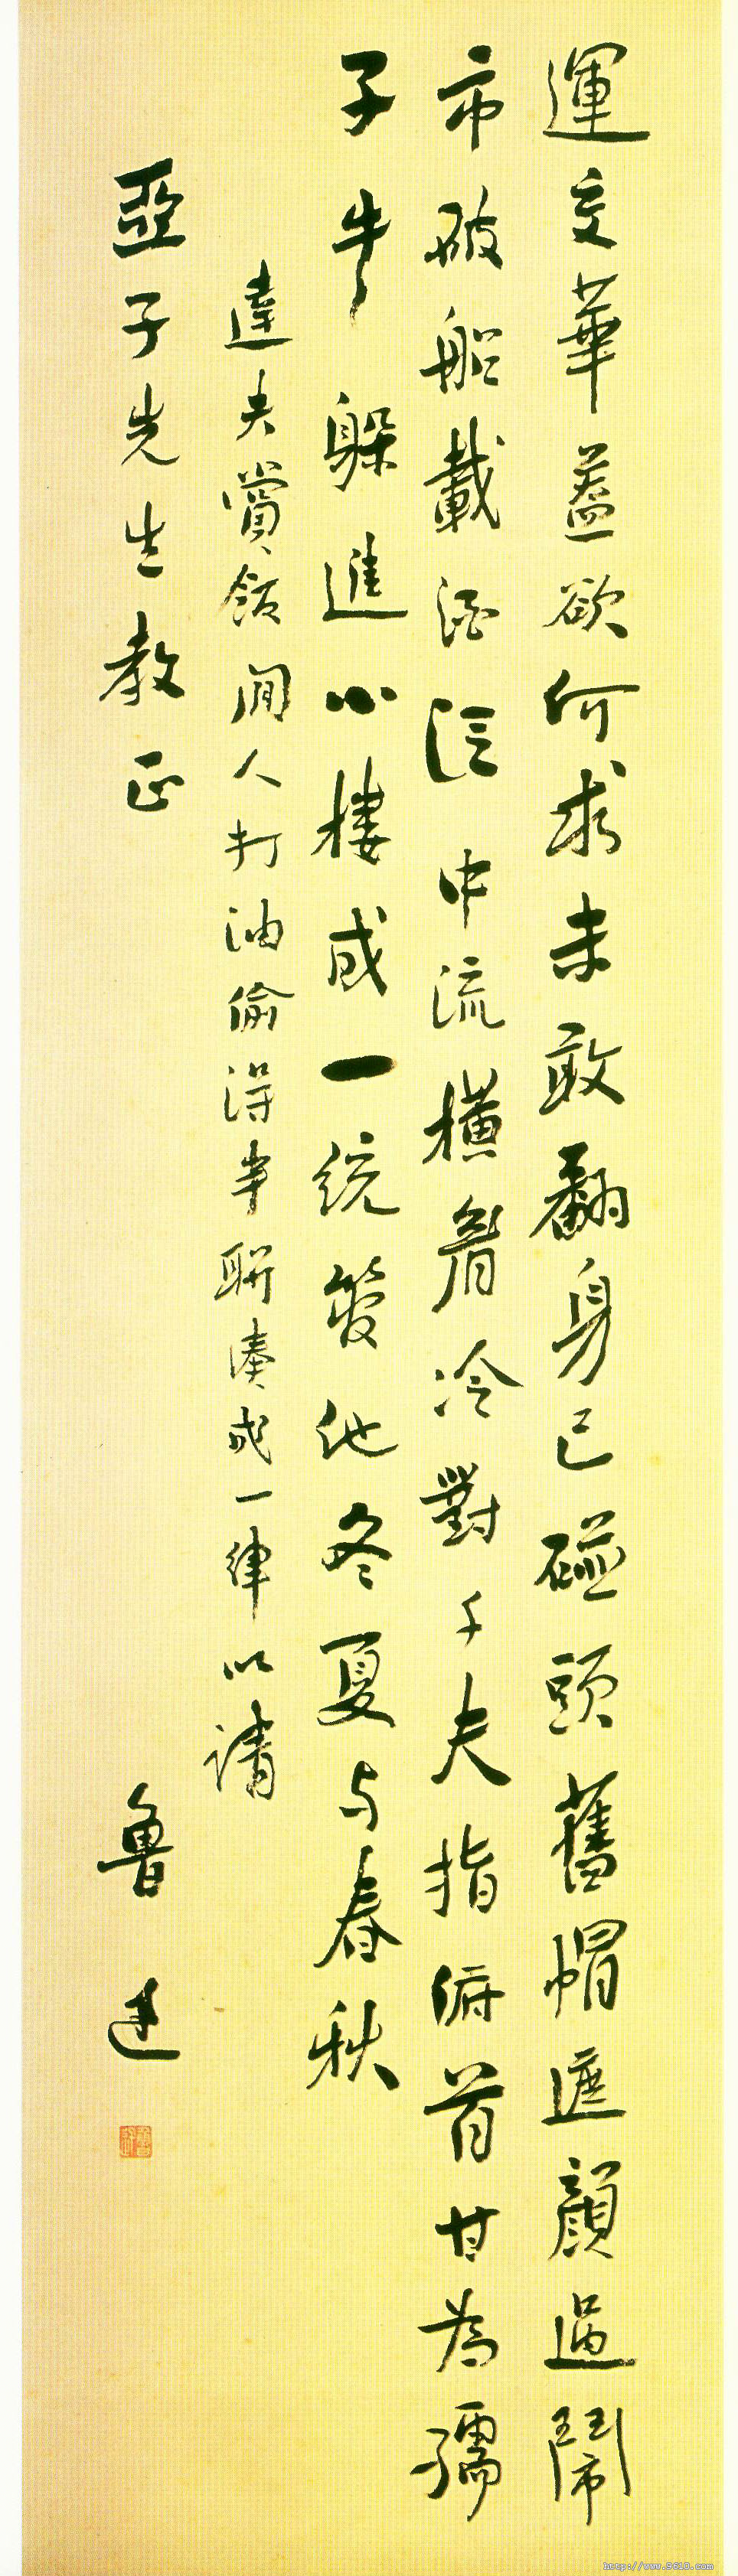 運交華蓋欲何求未敢翻身已碰頭舊帽遮顏過鬧
市破船載酒泛中流橫眉冷對千夫指俯首甘為孺
子牛躲進小樓成一統管他冬夏与春秋
達夫賞飯閒人打油偷得半聯湊成一律以請
亞子先生教正
魯迅
魯迅
http://www.9610.com